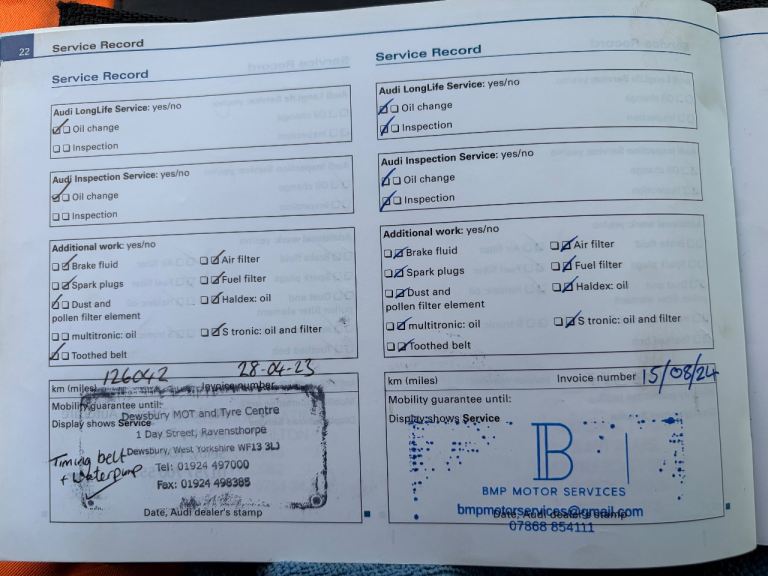 22
Service Record
Service Record
Audi LongLife Service: yes/no
Oil change
Inspection
Audi Inspection Service: yes/no
Oil change
Inspection
Additional work: yes/no
Brake fluid
Air filter
Spark plugs
Fuel filter
Dust and
pollen filter element
Haldex: oil
multitronic: oil
S tronic: oil and filter
Toothed belt
126042
28-04-23
km (miles)
Invoice number
Mobility guarantee until:
Display shows Service
Dewsbury MOT and Tyre Centre
1 Day Street, Ravensthorpe
Dewsbury, West Yorkshire WF13 3LJ
Tel: 01924 497000
Fax: 01924 498385
Timing belt
+ Waterpump
Date, Audi dealer's stamp
Service Record
Audi LongLife Service: yes/no
Oil change
Inspection
Audi Inspection Service: yes/no
Oil change
Inspection
Additional work: yes/no
Brake fluid
Air filter
Spark plugs
Fuel filter
Dust and
pollen filter element
Haldex: oil
multitronic: oil
S tronic: oil and filter
Toothed belt
km (miles)
Invoice number 15/08/24
Mobility guarantee until:
Display shows Service
B
BMP MOTOR SERVICES
bmpmotorservices@gmail.com
Date, Audi dealer's stamp
07868 854111